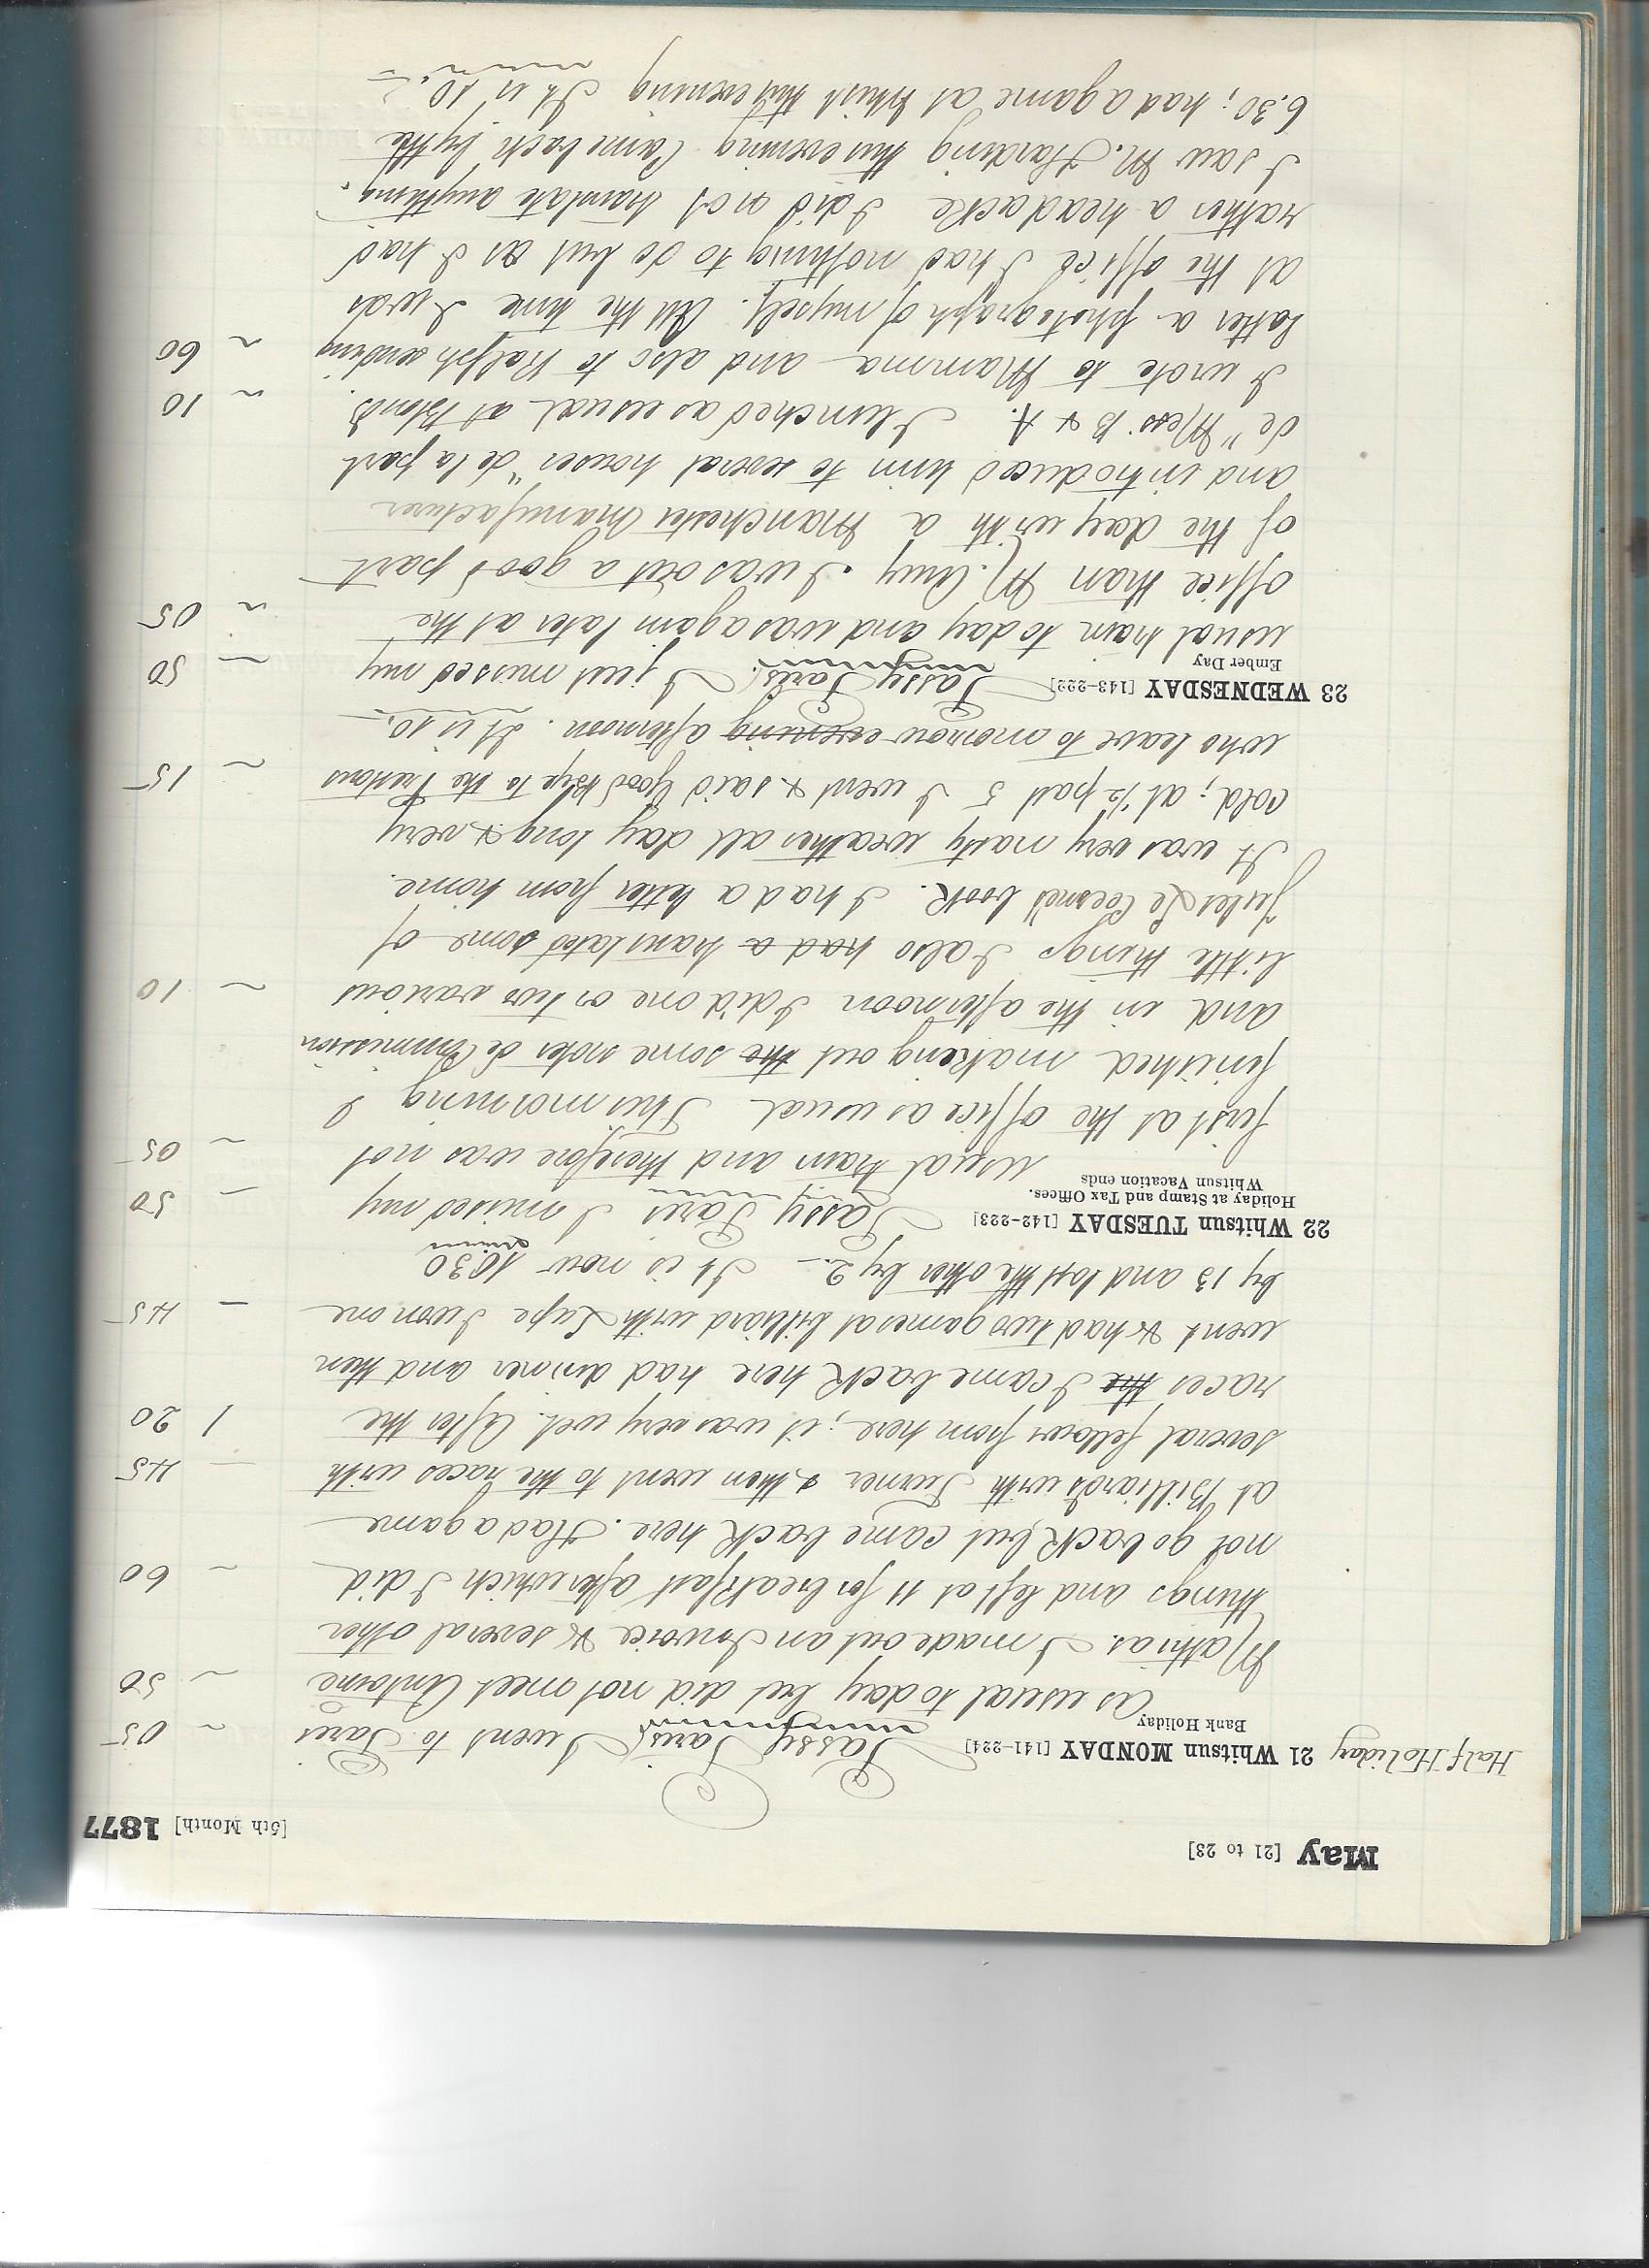 May [21 to 23] [5th Month] 1877
Half Holiday 21 Whitsun MONDAY [141-224] Passy Paris I went to Paris ~ 05
Bank Holiday
as usual to day but did not meet Antoine ~ 50
Mathias. I made out an Invoice & several other
things and left at 11 for breakfast after which I did ~ 60
not go back but came back here. Had a game
at Billiards with Turner & then went to the races with — 45
several fellows from here; it was very wet. After the 1 20
races the I came back here had dinner and then
went & had two games at billiard with Lupe I won one — 45
by 13 and lost the other by 2.— It is now 10.30
22 Whitsun TUESDAY [142-223] Passy Paris I missed my — 50
Holiday at Stamp and Tax Offices.
Whitsun Vacation ends
usual train and therefore was not ~ 05
first at the office as usual This morning I
finished making out the some notes de Commission
and in the afternoon I did one or two various ~ 10
little things I also had a translated some of
Jules Le Cesne's book. I had a letter from home.
It was very nasty weather all day long & very
cold; at ½ past 5 I went & said Good Bye to the Prestons ~ 15
who leave to morrow evening afternoon. It is 10.—
23 WEDNESDAY [143-222] Passy Paris. I just missed my — 50
Ember Day
usual train to day and was again later at the ~ 05
office than M. Amy. I was out a good part
of the day with a Manchester Manufacturer
and introduced him to several houses "de la part
de" Mess B & A. I lunched as usual at Blonds. ~ 10
I wrote to Mamma and also to Ralph sending ~ 60
latter a photograph of myself. All the time I was
at the office I had nothing to do but as I had
rather a headache I did not translate anything.
I saw M. Harding this evening Came back by the
6.30; had a game at Whist this evening It is 10.—